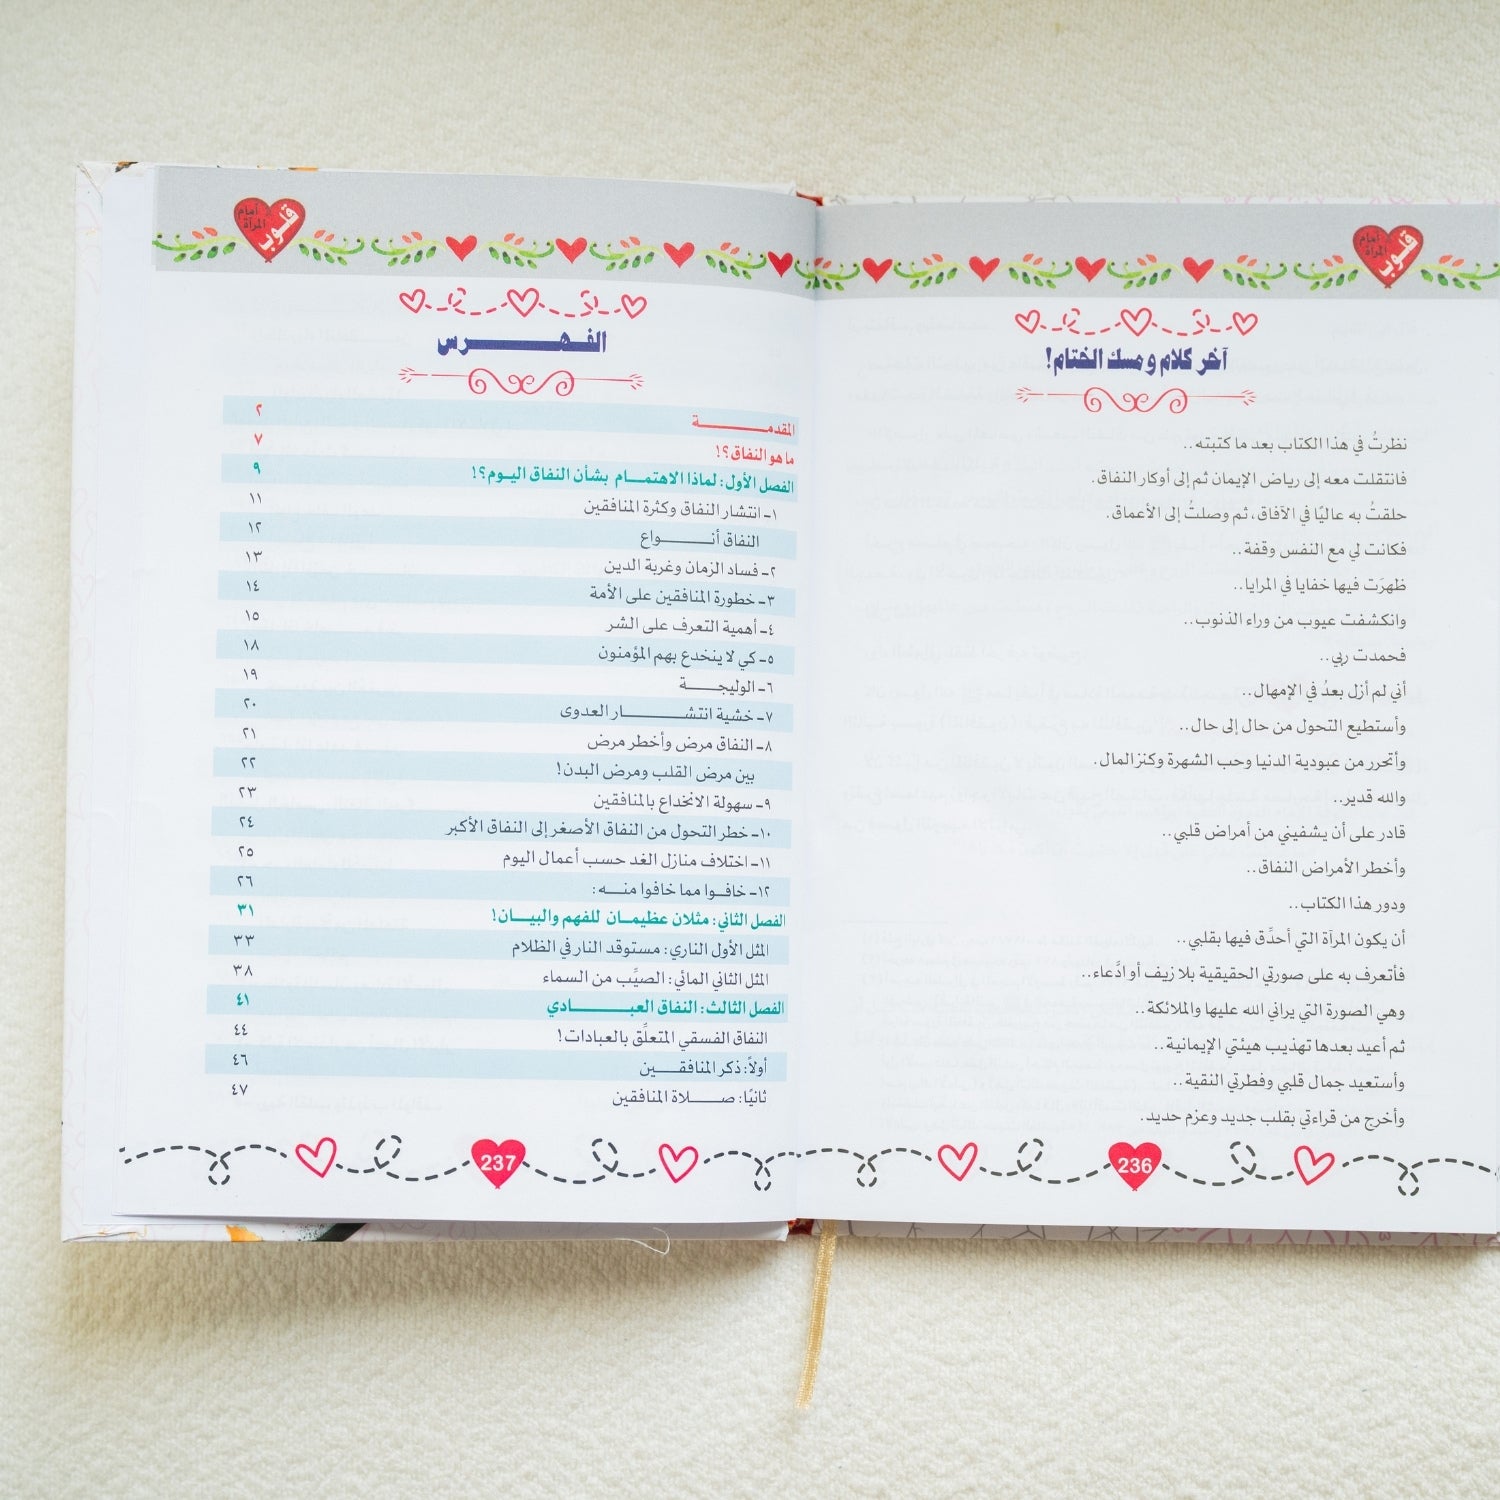 قلوب أمام المرآة
آخر كلام و مسك الختام!
نظرتُ في هذا الكتاب بعد ما كتبته..
فانتقلت معه إلى رياض الإيمان ثم إلى أوكار النفاق.
حلقتُ به عاليًا في الآفاق، ثم وصلتُ إلى الأعماق.
فكانت لي مع النفس وقفة..
ظهرَت فيها خفايا في المرايا..
وانكشفت عيوب من وراء الذنوب..
فحمدت ربي..
أني لم أزل بعدُ في الإمهال..
وأستطيع التحول من حال إلى حال..
وأتحرر من عبودية الدنيا وحب الشهرة وكنز المال.
والله قدير..
قادر على أن يشفيني من أمراض قلبي..
وأخطر الأمراض النفاق..
ودور هذا الكتاب..
أن يكون المرآة التي أحدِّق فيها بقلبي..
فأتعرف به على صورتي الحقيقية بلا زيف أو ادَّعاء..
وهي الصورة التي يراني الله عليها والملائكة..
ثم أعيد بعدها تهذيب هيئتي الإيمانية..
وأستعيد جمال قلبي وفطرتي النقية..
وأخرج من قراءتي بقلب جديد وعزم حديد.
236
قلوب أمام المرآة
الفهــــــرس
المقدمـــــــة ٢
ما هو النفاق؟! ٧
الفصل الأول: لماذا الاهتمــام بشأن النفاق اليـوم؟! ٩
١- انتشار النفاق وكثرة المنافقين ١١
النفاق أنــــــواع ١٢
٢- فساد الزمان وغربة الدين ١٣
٣- خطورة المنافقين على الأمة ١٤
٤- أهمية التعرف على الشر ١٥
٥- كي لا ينخدع بهم المؤمنون ١٨
٦- الوليجـــــة ١٩
٧- خشية انتشــــــار العدوى ٢٠
٨- النفاق مرض وأخطر مرض ٢١
بين مرض القلب ومرض البدن! ٢٢
٩- سهولة الانخداع بالمنافقين ٢٣
١٠- خطر التحول من النفاق الأصغر إلى النفاق الأكبر ٢٤
١١- اختلاف منازل الغد حسب أعمال اليوم ٢٥
١٢- خافـوا مما خافوا منـــه: ٢٦
الفصل الثاني: مثلان عظيمـان للفهم والبيــان! ٣١
المثل الأول الناري: مستوقد النار في الظلام ٣٣
المثل الثاني المائي: الصيِّب من السماء ٣٨
الفصل الثالث: النفاق العبـــــــادي ٤١
النفاق الفسقي المتعلِّق بالعبادات! ٤٤
أولاً: ذكر المنافقـــــين ٤٦
ثانيًا: صـــــلاة المنافقين ٤٧
237